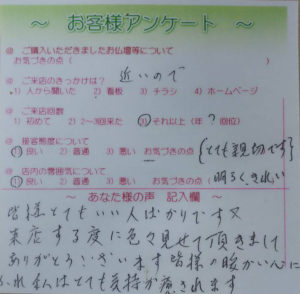 ～ お客様アンケート ～
◎ ご購入いただきましたお仏壇等について
お気づきの点 (                    )
◎ ご来店のきっかけは? 近いので
1) 人から聞いた 2) 看板 3) チラシ 4) ホームページ
◎ ご来店回数
1) 初めて 2) 2～3回来た 3) それ以上 (年 ? 回位)
◎ 接客態度について
1) 良い 2) 普通 3) 悪い お気づきの点 (とても親切です)
◎ 店内の雰囲気について
1) 良い 2) 普通 3) 悪い お気づきの点 (明るくきれい
～ あなた様の声 記入欄 ～
皆様とてもいい人ばかりです又
来店する度に色々見せて頂きまして
ありがとうございます皆様の暖かい心に
ふれ私はとても気持が癒されます